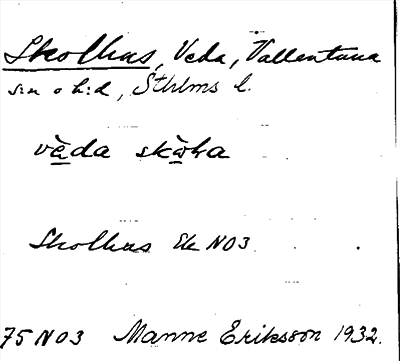 Skolhus, Veda, Vallentuna
sn o h:d, Sthlms l.
vèda skò̤ka
Skolhus Ek NO3
75 NO3 Manne Eriksson 1932.